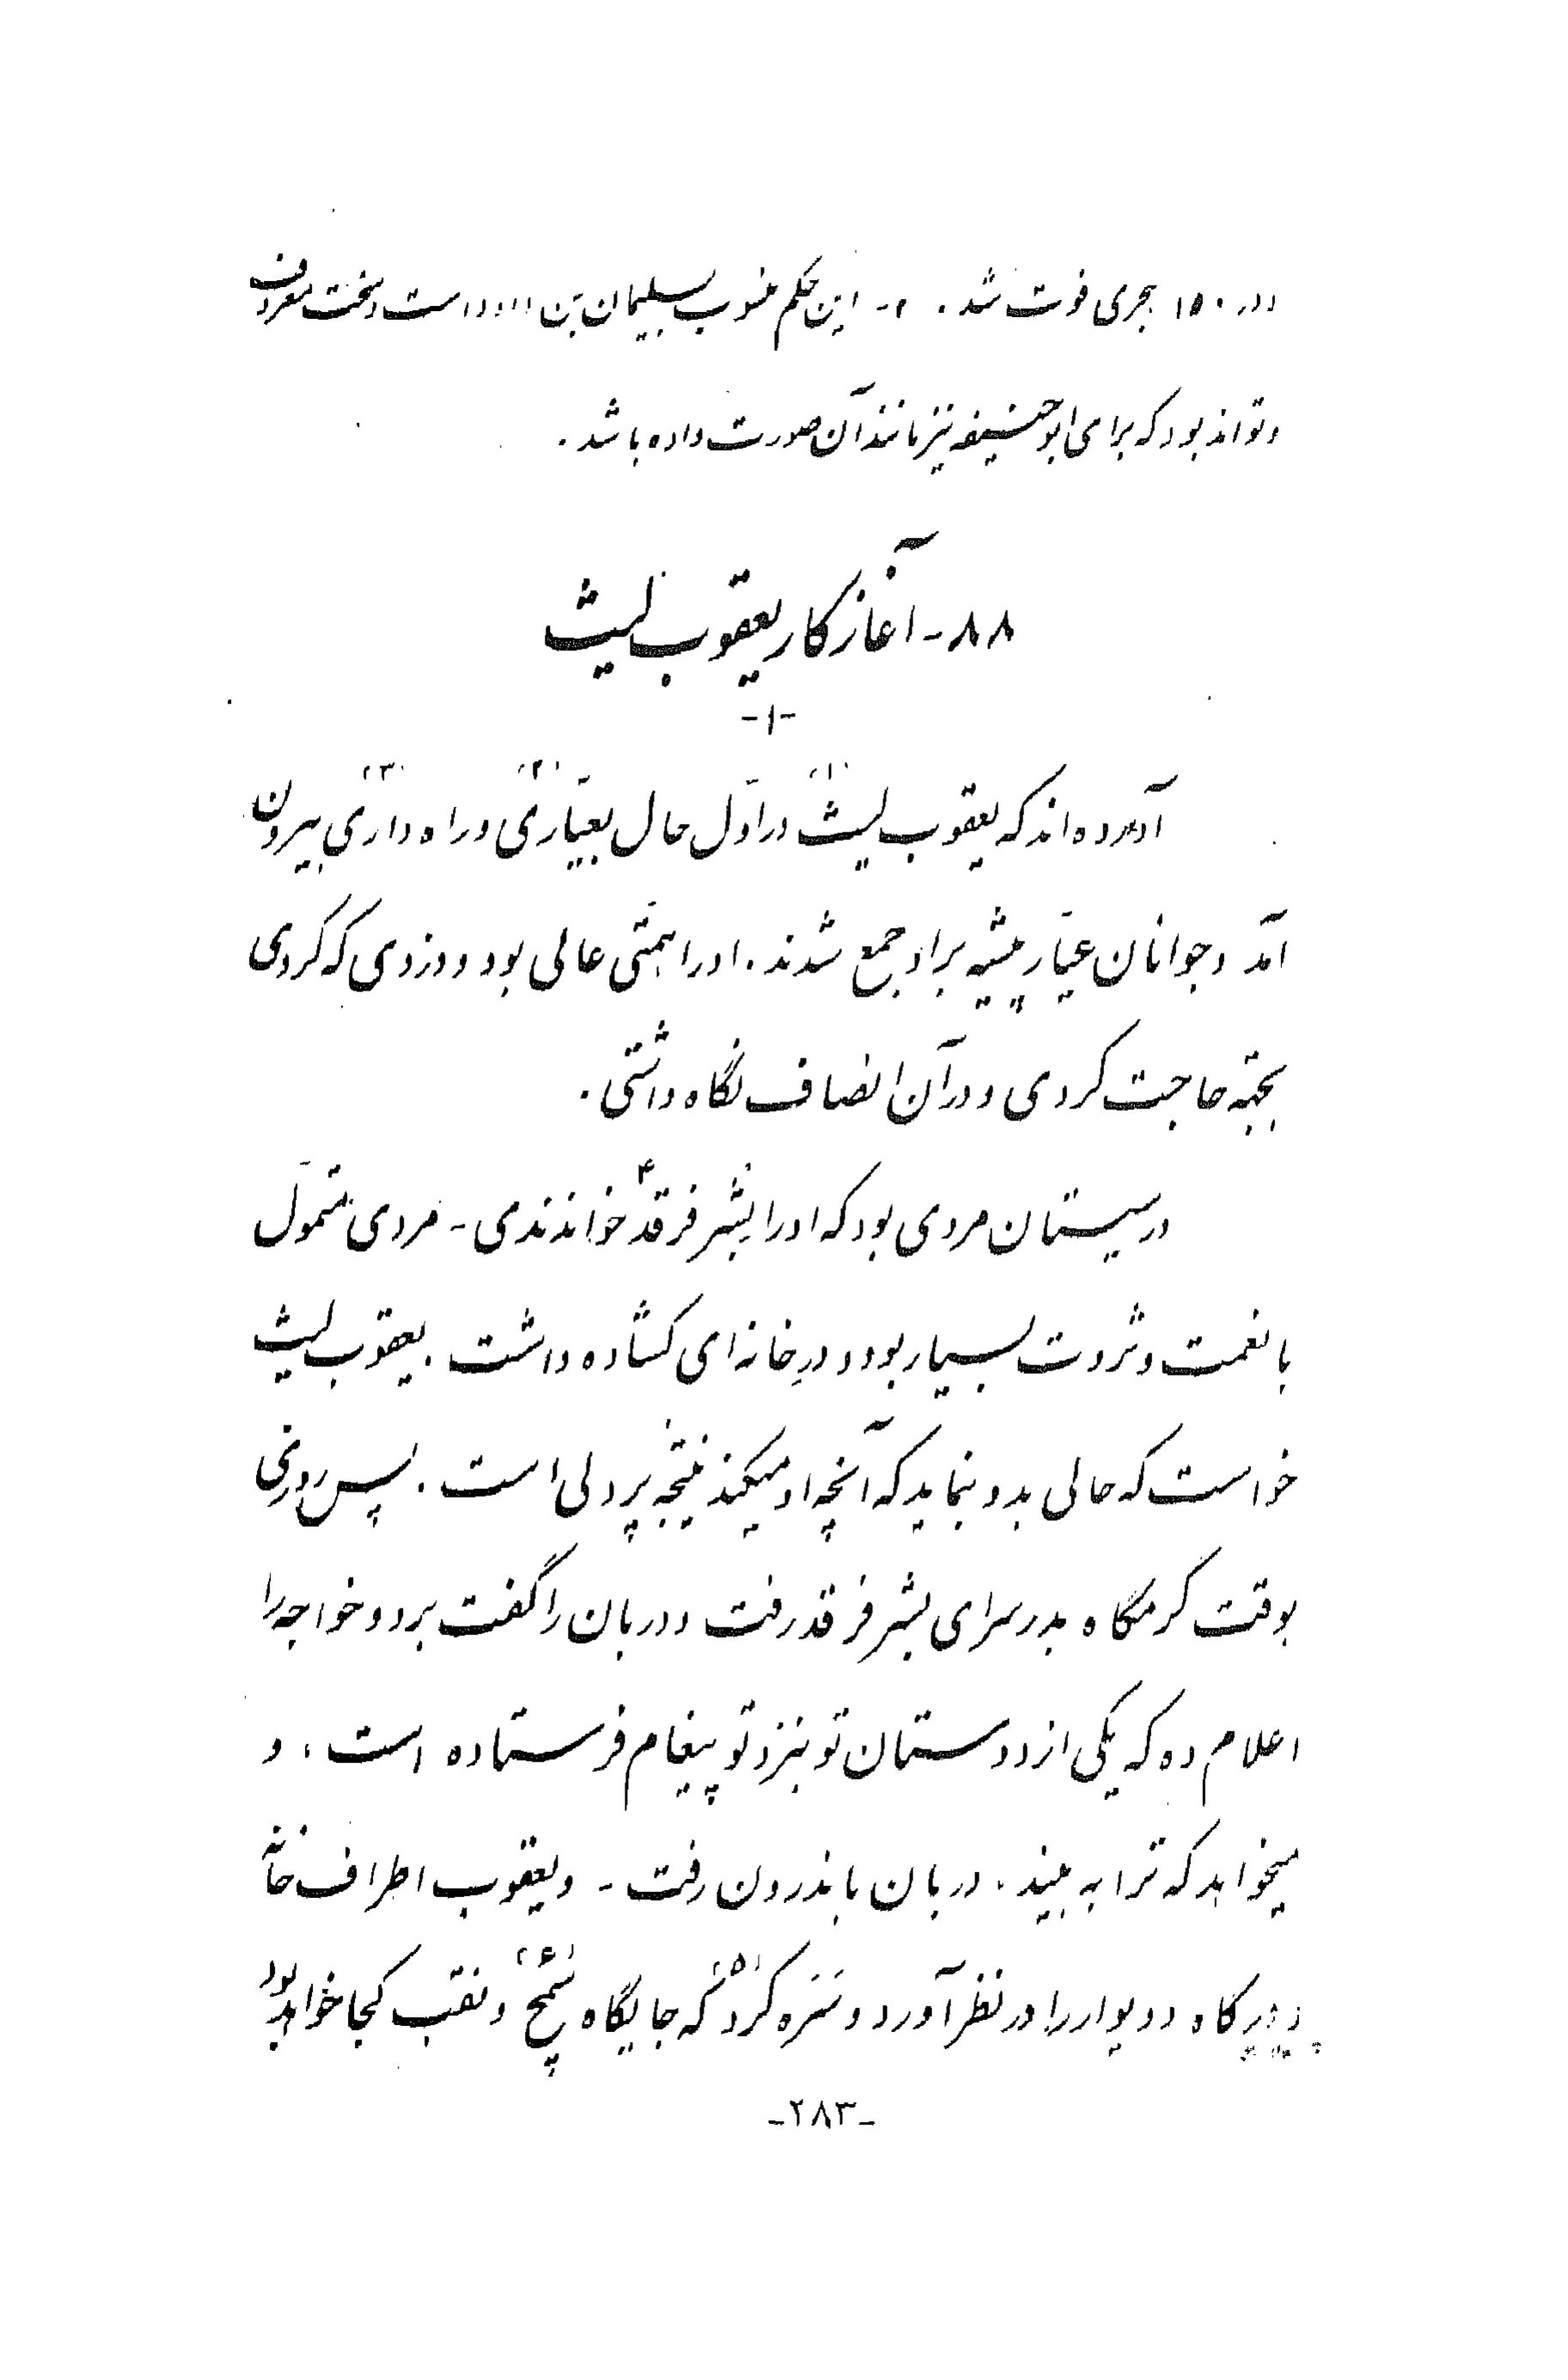 و در ۱۵۰ هجری فوت شد . ۲- این حکم منسوب بسلیمان بن داود است و سخت معروف
و تواند بود که برای ابو حنیفه نیز مانند آن صورت داده باشد .
۸۸ - آغاز کار یعقوب لیث
-۱-
آورده‌اند که یعقوب لیث (۱) در اوّل حال بعیّاری (۲) و راه داری (۳) بیرون
آمد و جوانان عیّار پیشه بر او جمع شدند . او را همّتی عالی بود و دزدی که کردی
بجهة حاجت کردی و در آن انصاف نگاه داشتی .
در سیستان مردی بود که او را بشر فرقد ۴ خواندندی - مردی متموّل
با نعمت و ثروت بسیار بود و درِ خانه‌ای کشاده داشت . یعقوب لیث
خواست که حالی بدو بنماید که آنچه او میکند نتیجه پردلی است . پس روزی
بوقت گرمگاه بدر سرای بشر فرقد رفت و دربان را گفت برو و خواجه را
اعلام ده که یکی از دوستان تو بنزد تو پیغام فرستاده است ، و
میخواهد که ترا به بیند . دربان باندرون رفت - و یعقوب اطراف خانه
و در گاه و دیوار را در نظر آورد و سَمَره کرد (۵) که جایگاه شَمخ (۶) و نقب کجا خواهد بود
-۲۸۳-